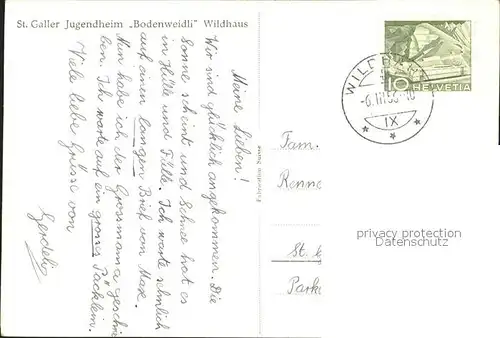 St. Galler Jugendheim „Bodenweidli" Wildhaus
Meine Lieben!
Wir sind glücklich angekommen. Die
Sonne scheint und Schnee hat es
in Hülle und Fülle. Ich warte sehnlich
auf einen langen Brief von Max.
Nun habe ich der Grossmama geschrie
ben. Ich warte auf ein grosses Päcklein.
Viele liebe Grüsse von
HELVETIA
10
WILDHAUS
-6.III.56-18
IX
Fam.
Renne
St. G
Park
privacy protection
Datenschutz